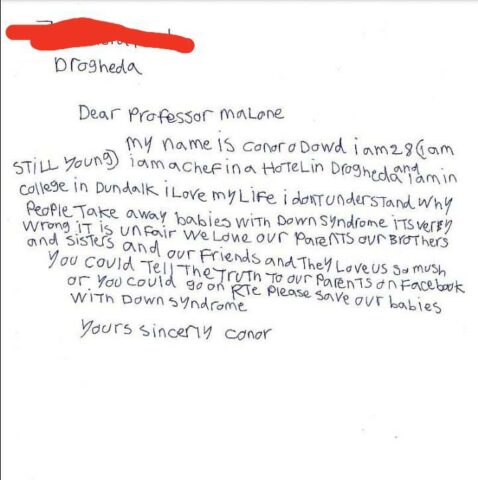 Drogheda
Dear Professor Malone
my name is conor o Dowd i am 28 (i am
STill Young) i am a chef in a HoTeL in Drogheda and i am in
college in Dundalk i Love my Life i donT understand why
People Take away babies with Down syndrome iTs verry
wrong iT is unfair we Love our ParenTs our BroThers
and sisters and our Friends and They Love us so mush
You could Tell The Truth To our ParenTs on Facebook
or you could go on RTe Please save our babies
WiTh Down syndrome
Yours sincerly conor